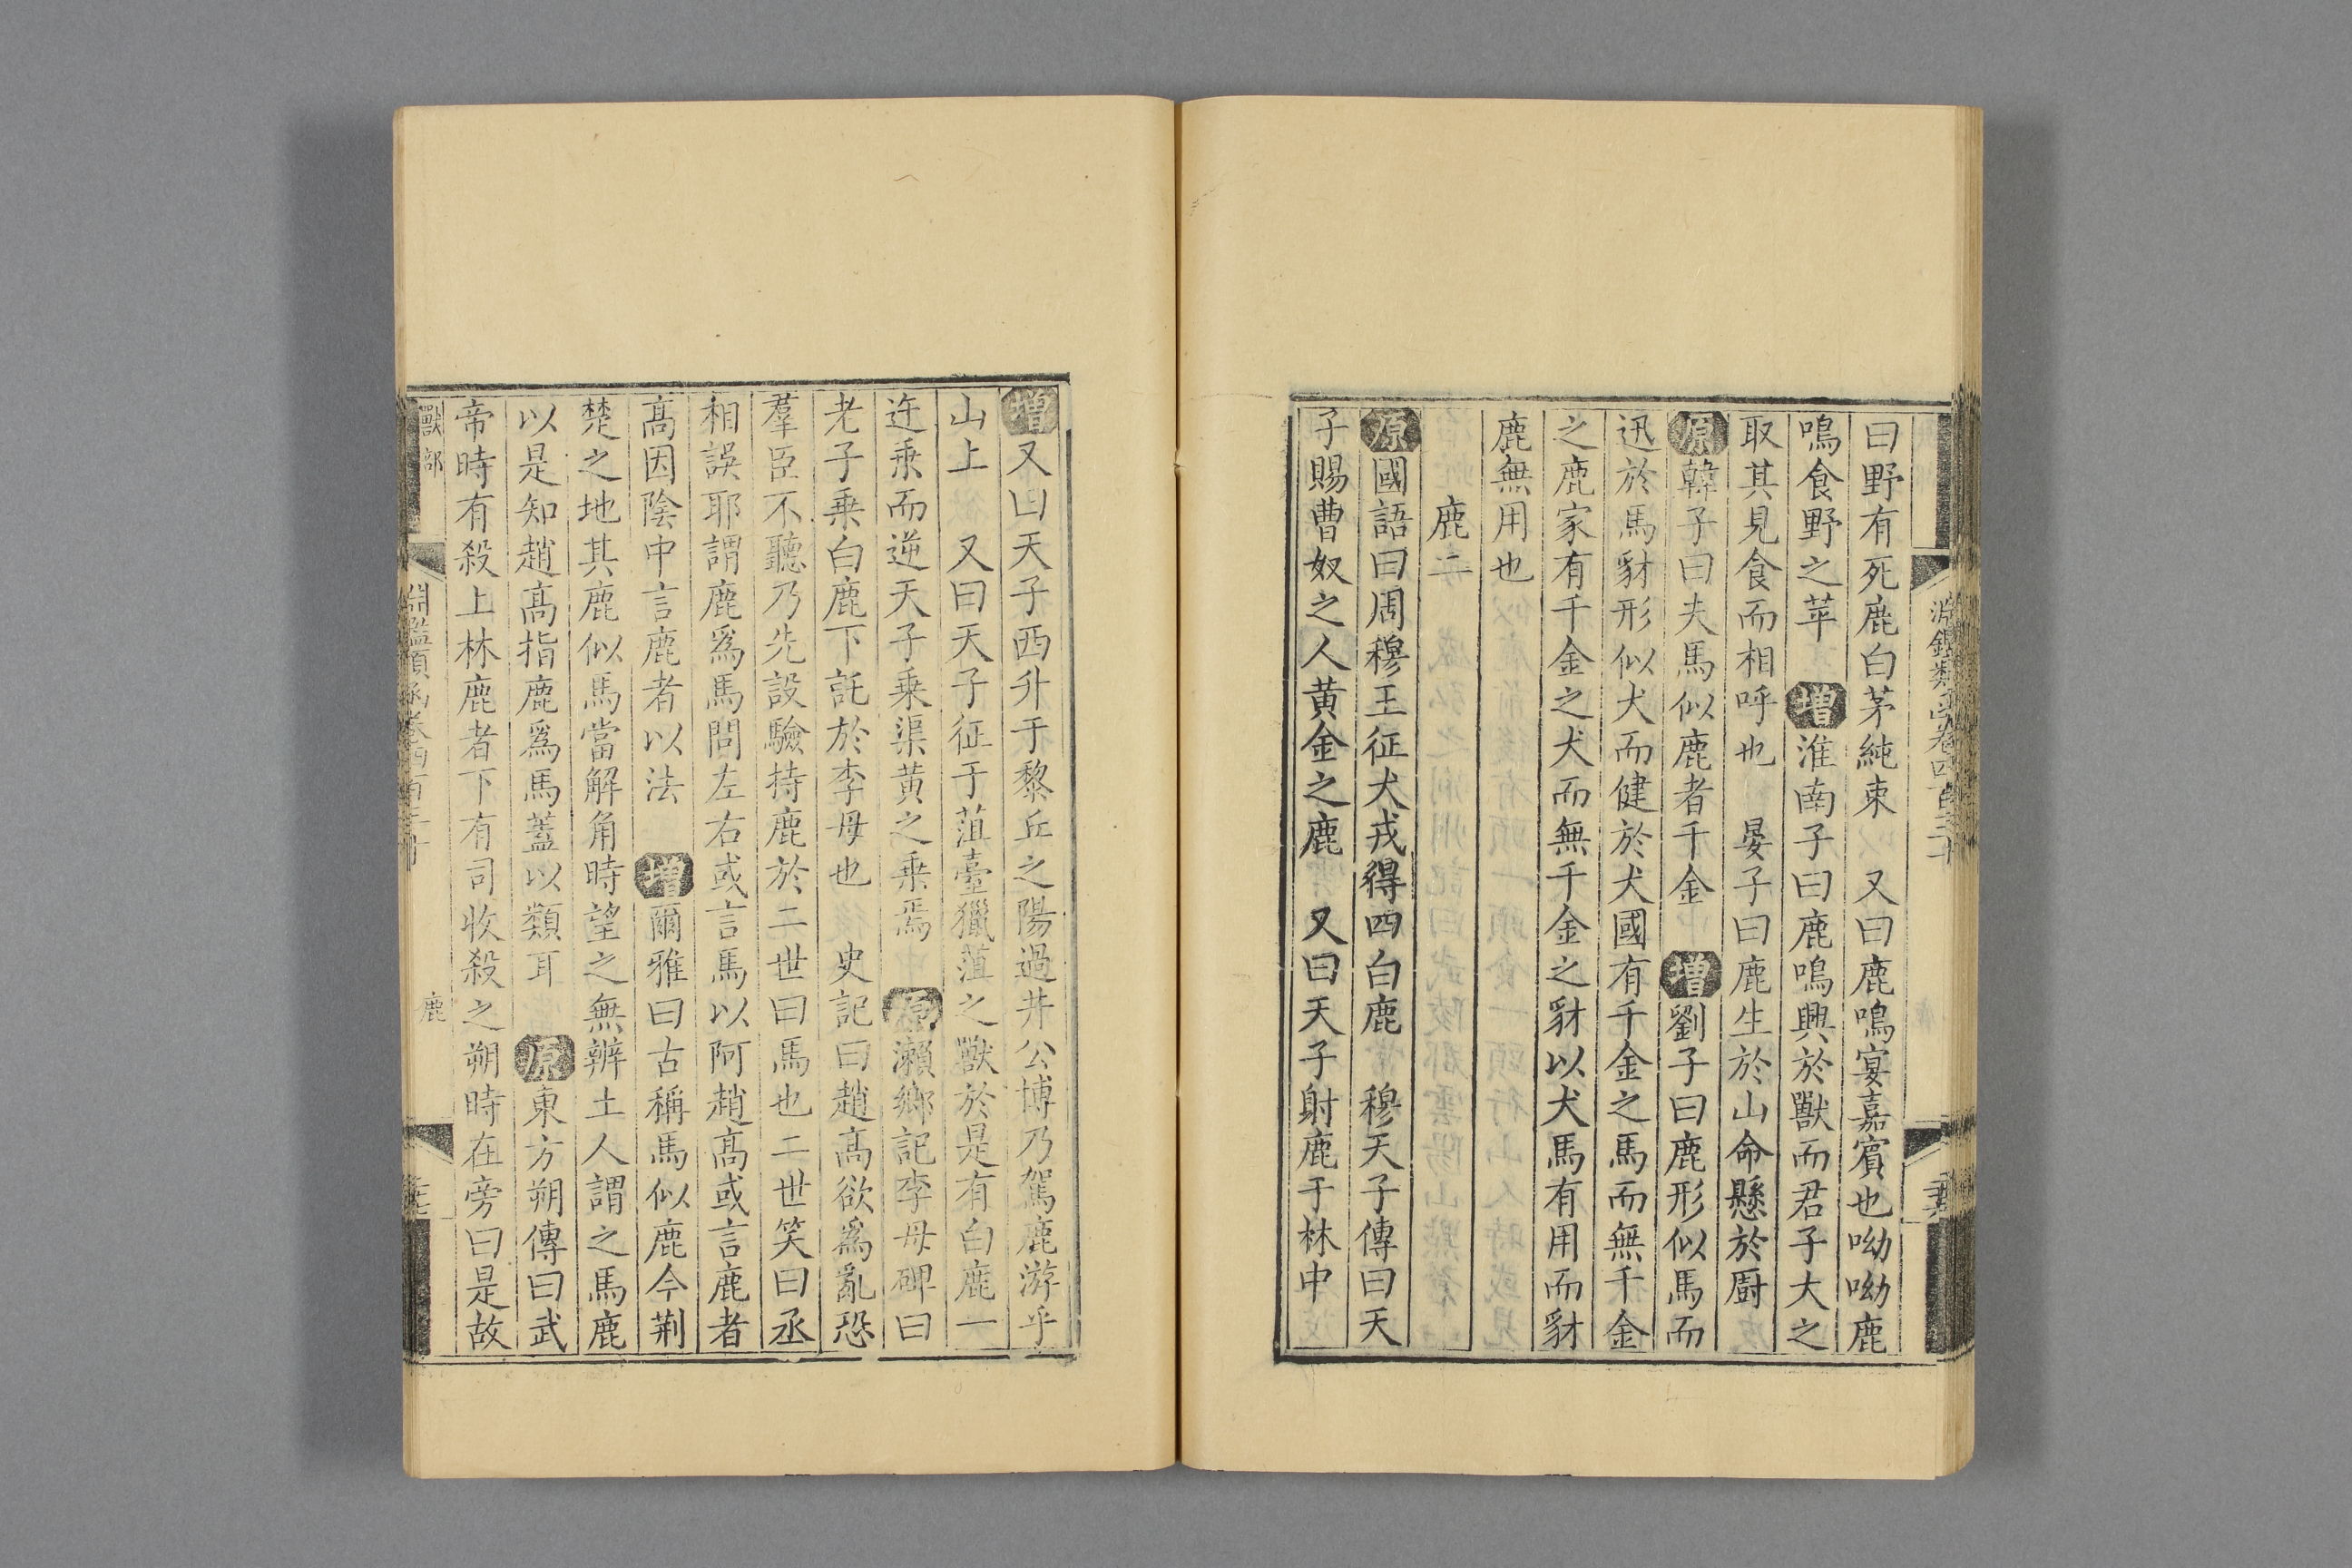 淵鑑類函卷四百三十
曰野有死鹿白茅純束　又曰鹿鳴宴嘉賓也呦呦鹿
鳴食野之苹　增淮南子曰鹿鳴興於獸而君子大之
取其見食而相呼也　晏子曰鹿生於山命懸於廚
原韓子曰夫馬似鹿者千金　增劉子曰鹿形似馬而
迅於馬豺形似犬而健於犬國有千金之馬而無千金
之鹿家有千金之犬而無千金之豺以犬馬有用而豺
鹿無用也
鹿二
原國語曰周穆王征犬戎得四白鹿　穆天子傳曰天
子賜曹奴之人黄金之鹿　又曰天子射鹿于林中
增又曰天子西升于黎丘之陽過井公博乃駕鹿游乎
山上　又曰天子征于菹臺獵菹之獸於是有白鹿一
迕乘而逆天子乗渠黄之乘焉　原瀨鄉記李母碑曰
老子乗白鹿下託於李母也　史記曰趙髙欲爲亂恐
羣臣不聽乃先設驗持鹿於二世曰馬也二世笑曰丞
相誤耶謂鹿爲馬問左右或言馬以阿趙髙或言鹿者
髙因陰中言鹿者以法　增爾雅曰古稱馬似鹿今荆
楚之地其鹿似馬當解角時望之無辨土人謂之馬鹿
以是知趙髙指鹿爲馬蓋以類耳　原東方朔傳曰武
帝時有殺上林鹿者下有司收殺之朔時在旁曰是故
獸部　淵鑑類函卷四百三十　鹿